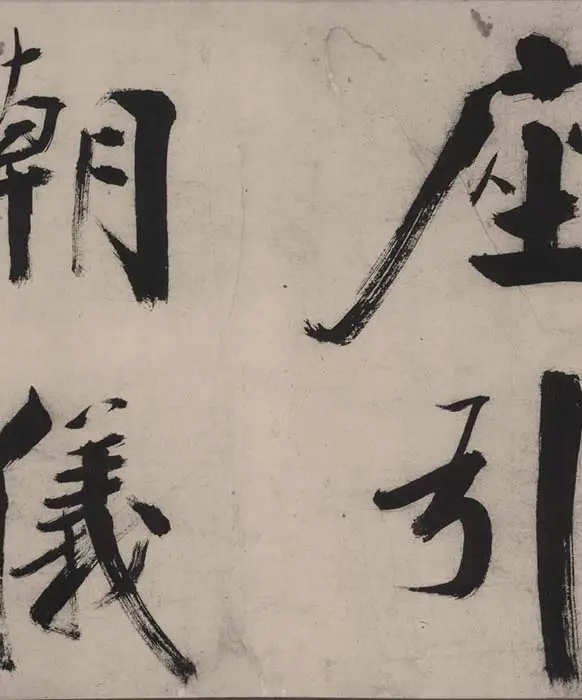 座引
朝儀